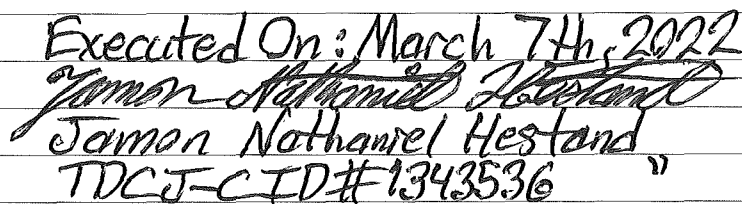 Executed On: March 7th, 2022
Jamon Nathaniel Hestand
Jamon Nathaniel Hestand
TDCJ-CID#1343536 "